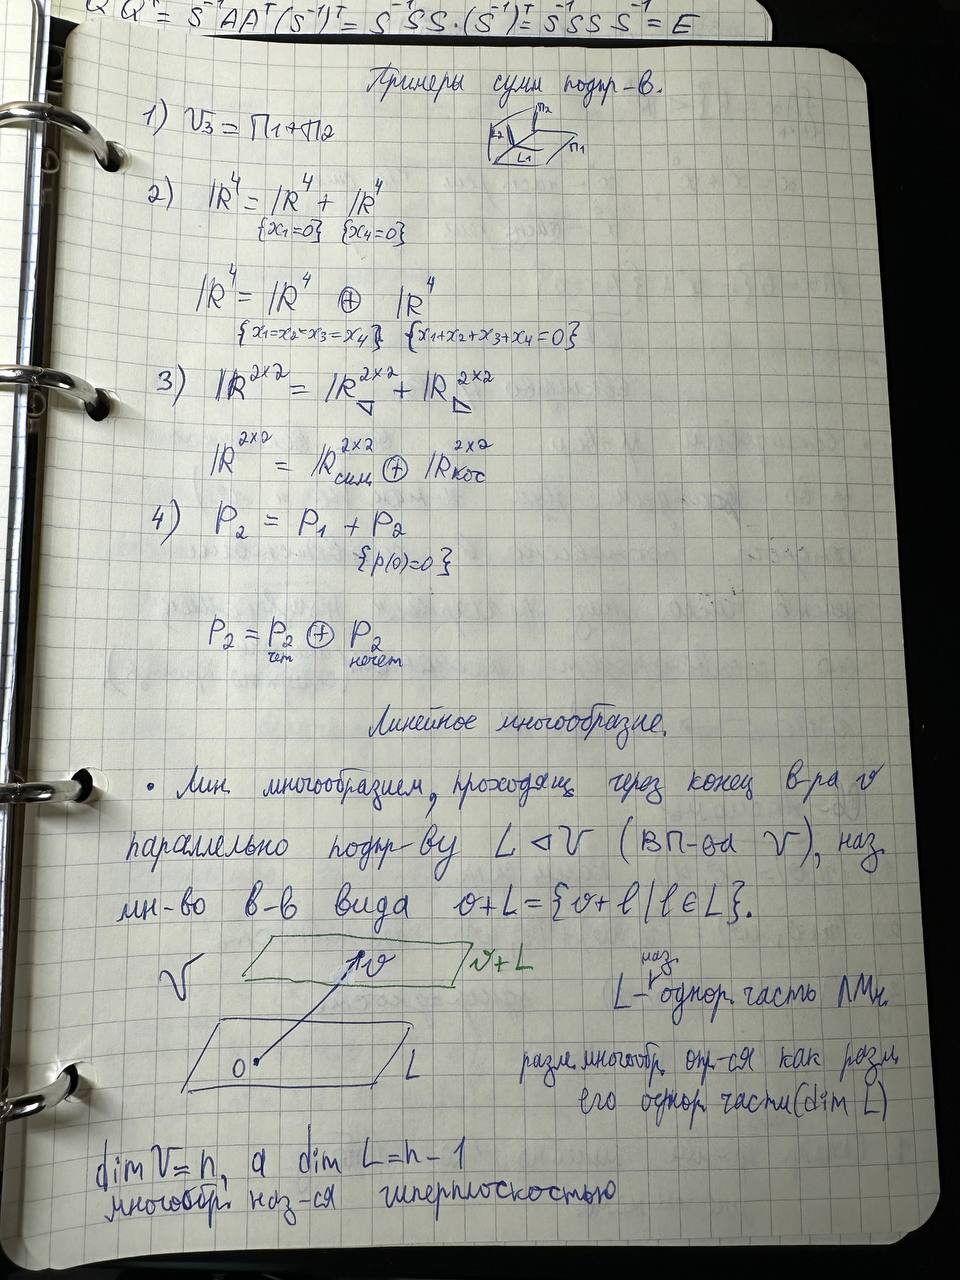 Q Qᵀ = S⁻¹AAᵀ(S⁻¹)ᵀ = S⁻¹SS·(S⁻¹)ᵀ = S⁻¹SSS⁻¹ = E
Примеры сумм подпр-в.
1) V₃ = П₁+П₂
П₂
L₂
L₁
П₁
2) ℝ⁴ = ℝ⁴ + ℝ⁴
{x₁=0} {x₄=0}
ℝ⁴ = ℝ⁴ ⊕ ℝ⁴
{x₁=x₂=x₃=x₄} {x₁+x₂+x₃+x₄=0}
3) ℝ²ˣ² = ℝ²ˣ² + ℝ²ˣ²
ℝ²ˣ² = ℝ²ˣ² сим ⊕ ℝ²ˣ² кос
4) P₂ = P₁ + P₂
{p(0)=0}
P₂ = P₂ ⊕ P₂
чет нечет
Линейное многообразие.
• Лин. многообразием, проходящ через конец в-ра v
параллельно подпр-ву L ⊲ V (ВП-ва V), наз.
мн-во в-в вида v+L={v+l | l∈L}.
V
v
v+L
наз.
L - однор. часть ЛМн.
0
L
разм. многообр. опр-ся как разм.
его однор. части (dim L)
dim V=n, а dim L=n-1
многообр. наз-ся гиперплоскостью